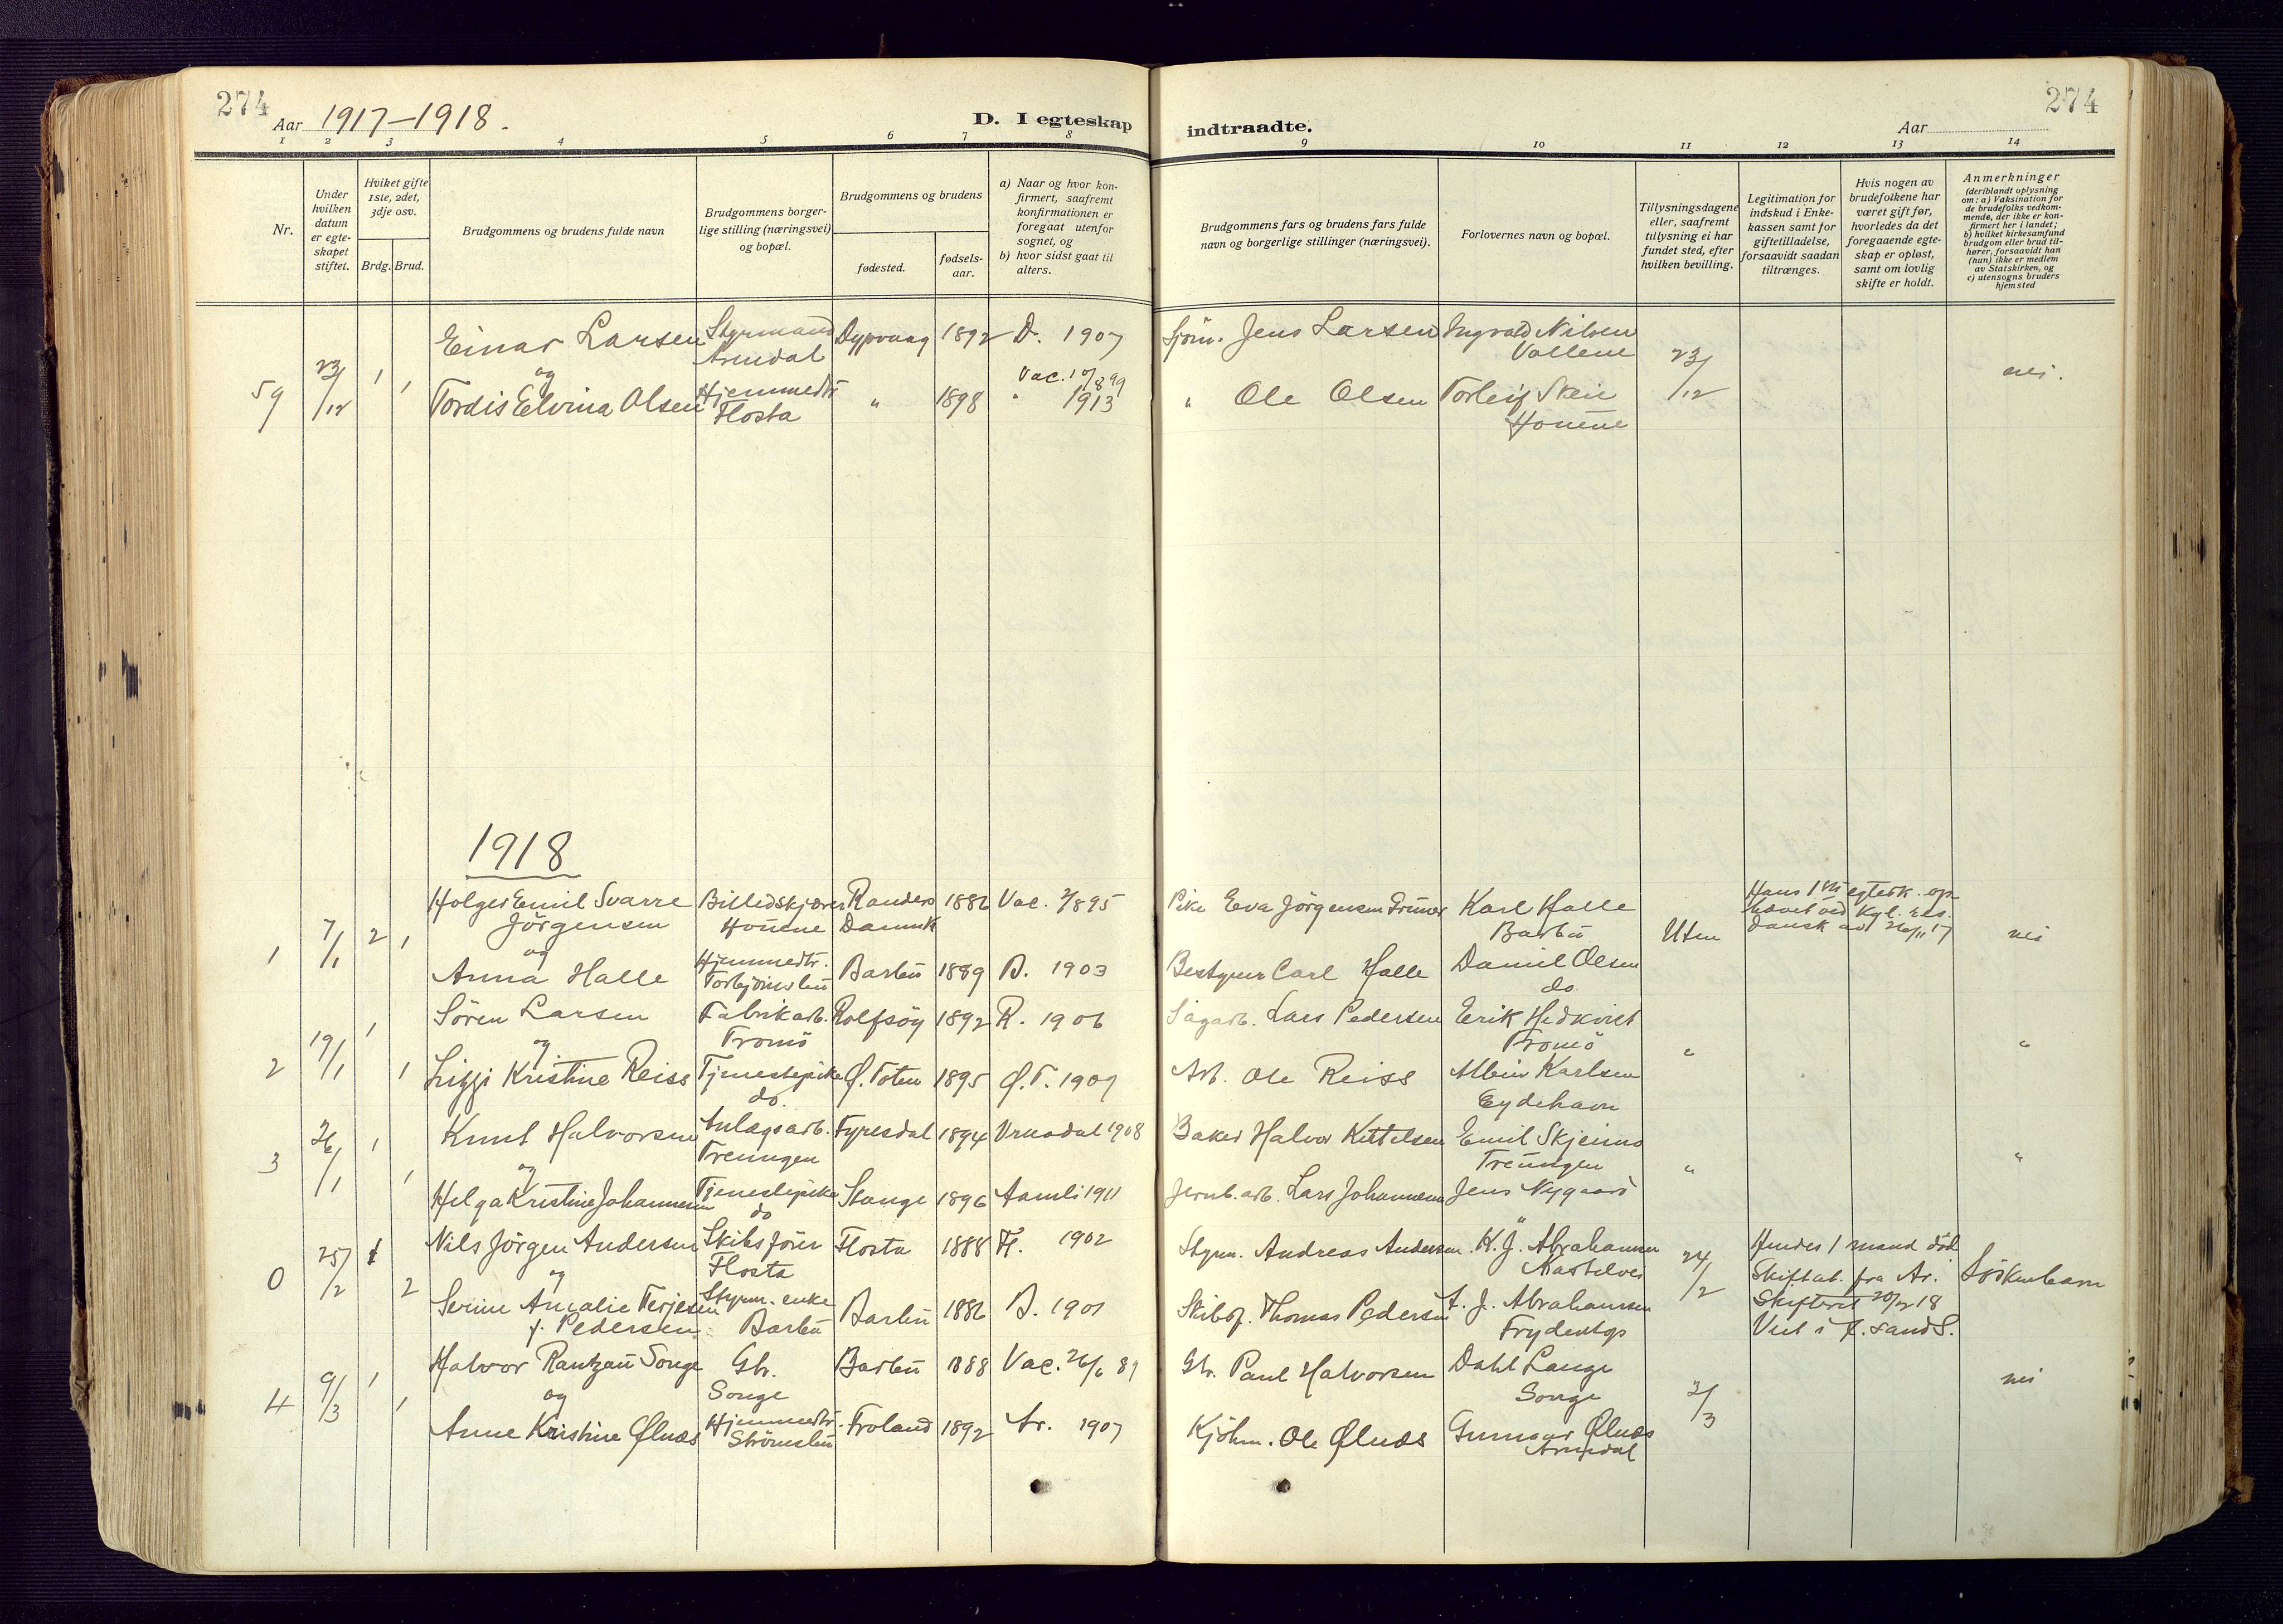 274
Aar 1917–1918.
D. I egteskap
indtraadte.
Aar
274
1 2 3 4 5 6 7 8
9 10 11 12 13 14
Nr.
Under hvilken datum er egteskapet stiftet.
Hviket gifte 1ste, 2det, 3dje osv.
Brdg. Brud.
Brudgommens og brudens fulde navn
Brudgommens borgerlige stilling (næringsvei) og bopæl.
Brudgommens og brudens
fødested.
fødselsaar.
a) Naar og hvor konfirmert, saafremt konfirmationen er foregaat utenfor sognet, og
b) hvor sidst gaat til alters.
Brudgommens fars og brudens fars fulde navn og borgerlige stillinger (næringsvei).
Forlovernes navn og bopæl.
Tillysningsdagene eller, saafremt tillysning ei har fundet sted, efter hvilken bevilling.
Legitimation for indskud i Enkekassen samt for giftetilladelse, forsaavidt saadan tiltrænges.
Hvis nogen av brudefolkene har været gift før, hvorledes da det foregaaende egteskap er opløst, samt om lovlig skifte er holdt.
Anmerkninger
(deriblandt oplysning om: a) Vaksination for de brudefolks vedkommende, der ikke er konfirmert her i landet; b) hvilket kirkesamfund brudgom eller brud tilhører, forsaavidt han (hun) ikke er medlem av Statskirken, og c) utensogns bruders hjemsted
59 23/12 1 Einar Larsen Styrmand Arendal Dypvaag 1892 D. 1907 Sjøm. Jens Larsen Ingvald Nilsen Vollene 23/12 nei.
og
1 Tordis Elvina Olsen Hjemmedtr Flosta " 1898 Vac. 10/8 99 " 1913 " Ole Olsen Torleif Skeie Houene
1918
1 7/1 2 Holger Emil Svarre Jörgensen Billedskjærer Houene Randers Danmk 1886 Vac. 2/8 95 Pike Eva Jörgensen Karl Halle Barbu Uten Hans 1ste egtesk. ophævet ved Kgl. res. dansk av 26/11 17 nei
og
1 Anna Halle Hjemmedtr. Torbjörnsbu Barbu 1889 B. 1903 Bestyrer Carl Halle Daniel Olsen do.
2 19/1 1 Sören Larsen Fabrikarb. Tromö Rolfsöy 1892 R. 1906 Sagarb. Lars Pedersen Erik Hedkvist Tromö " "
og
1 Lizzi Kristine Reiss Tjenestepike do. Ø. Toten 1895 Ø.T. 1909 Arb. Ole Reiss Albin Karlsen Eydehavn
3 26/1 1 Knut Halvorsen Anlægsarb. Treungen Fyresdal 1894 Vraadal 1908 Baker Halvor Kittelsen Emil Skjeimo Treungen " "
og
1 Helga Kristine Johannesen Tjenestepike do Stange 1896 Aamli 1911 Jernb. arb. Lars Johannesen Jens Nygaard "
0 25/2 1 Nils Jörgen Andersen Skibsförer Flosta Flosta 1888 Fl. 1902 Styrm. Andreas Andersen K. J. Abrahamsen Kastelvei 24/2 Hendes 1 mand död Skifteat. fra Ar. Skifteret 20/2 18 Viet i K. sand S.
og
2 Serine Amalie Terjesen f. Pedersen Styrm. enke Barbu Barbu 1886 B. 1901 Skibsf. Thomas Pedersen A. J. Abrahamsen Frydentop
4 9/3 1 Halvor Rantzau Songe Gbr. Songe Barbu 1888 Vac. 26/6 89 Gbr. Paul Halvorsen Dahl Lange Songe 3/3 nei
og
1 Anne Kristine Ølnes Hjemmedtr. Strömsbu Froland 1892 Ar. 1907 Kjöbm. Ole Ølnes Gunnar Ølnes Arendal